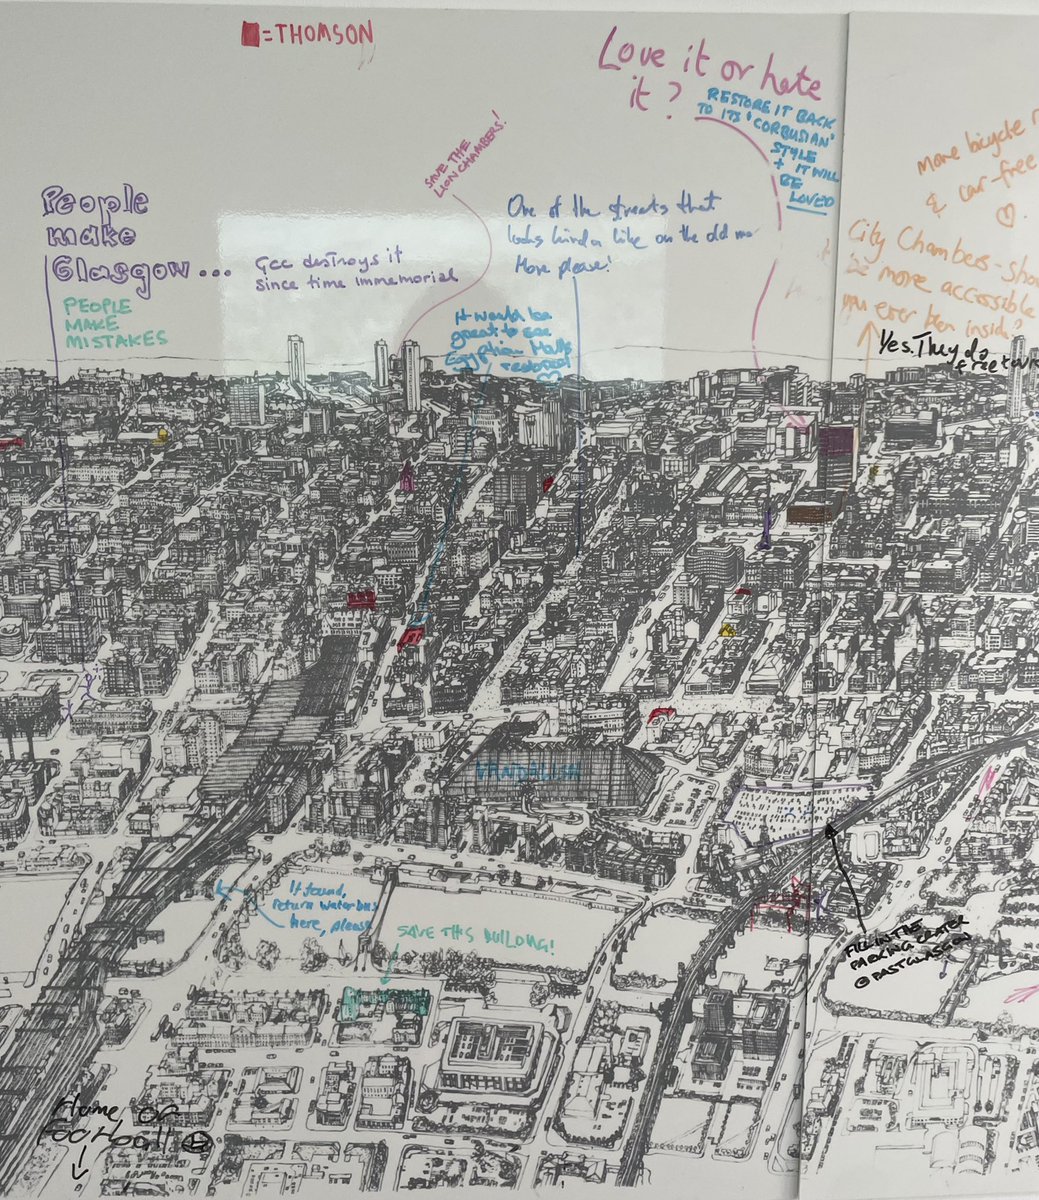 =THOMSON
Love it or hate
it?
RESTORE IT BACK
TO ITS 'CORBUSIAN'
STYLE
+ IT WILL
BE
LOVED
SAVE THE
LION CHAMBERS!
more bicycle
& car-free
People
make
Glasgow...
PEOPLE
MAKE
MISTAKES
GCC destroys it
since time immemorial
One of the streets that
looks kinda like on the old
More please!
City Chambers-
be more accessible
you ever been inside?
Yes. They do
free
It would be
great to see
Egyptian Halls
restored!
VANDALISM
If found,
return waterbus
here, please
SAVE THIS BUILDING!
FILL IN THE
PARKING CRATER
@PASTGLASGOW
Home of
Football!